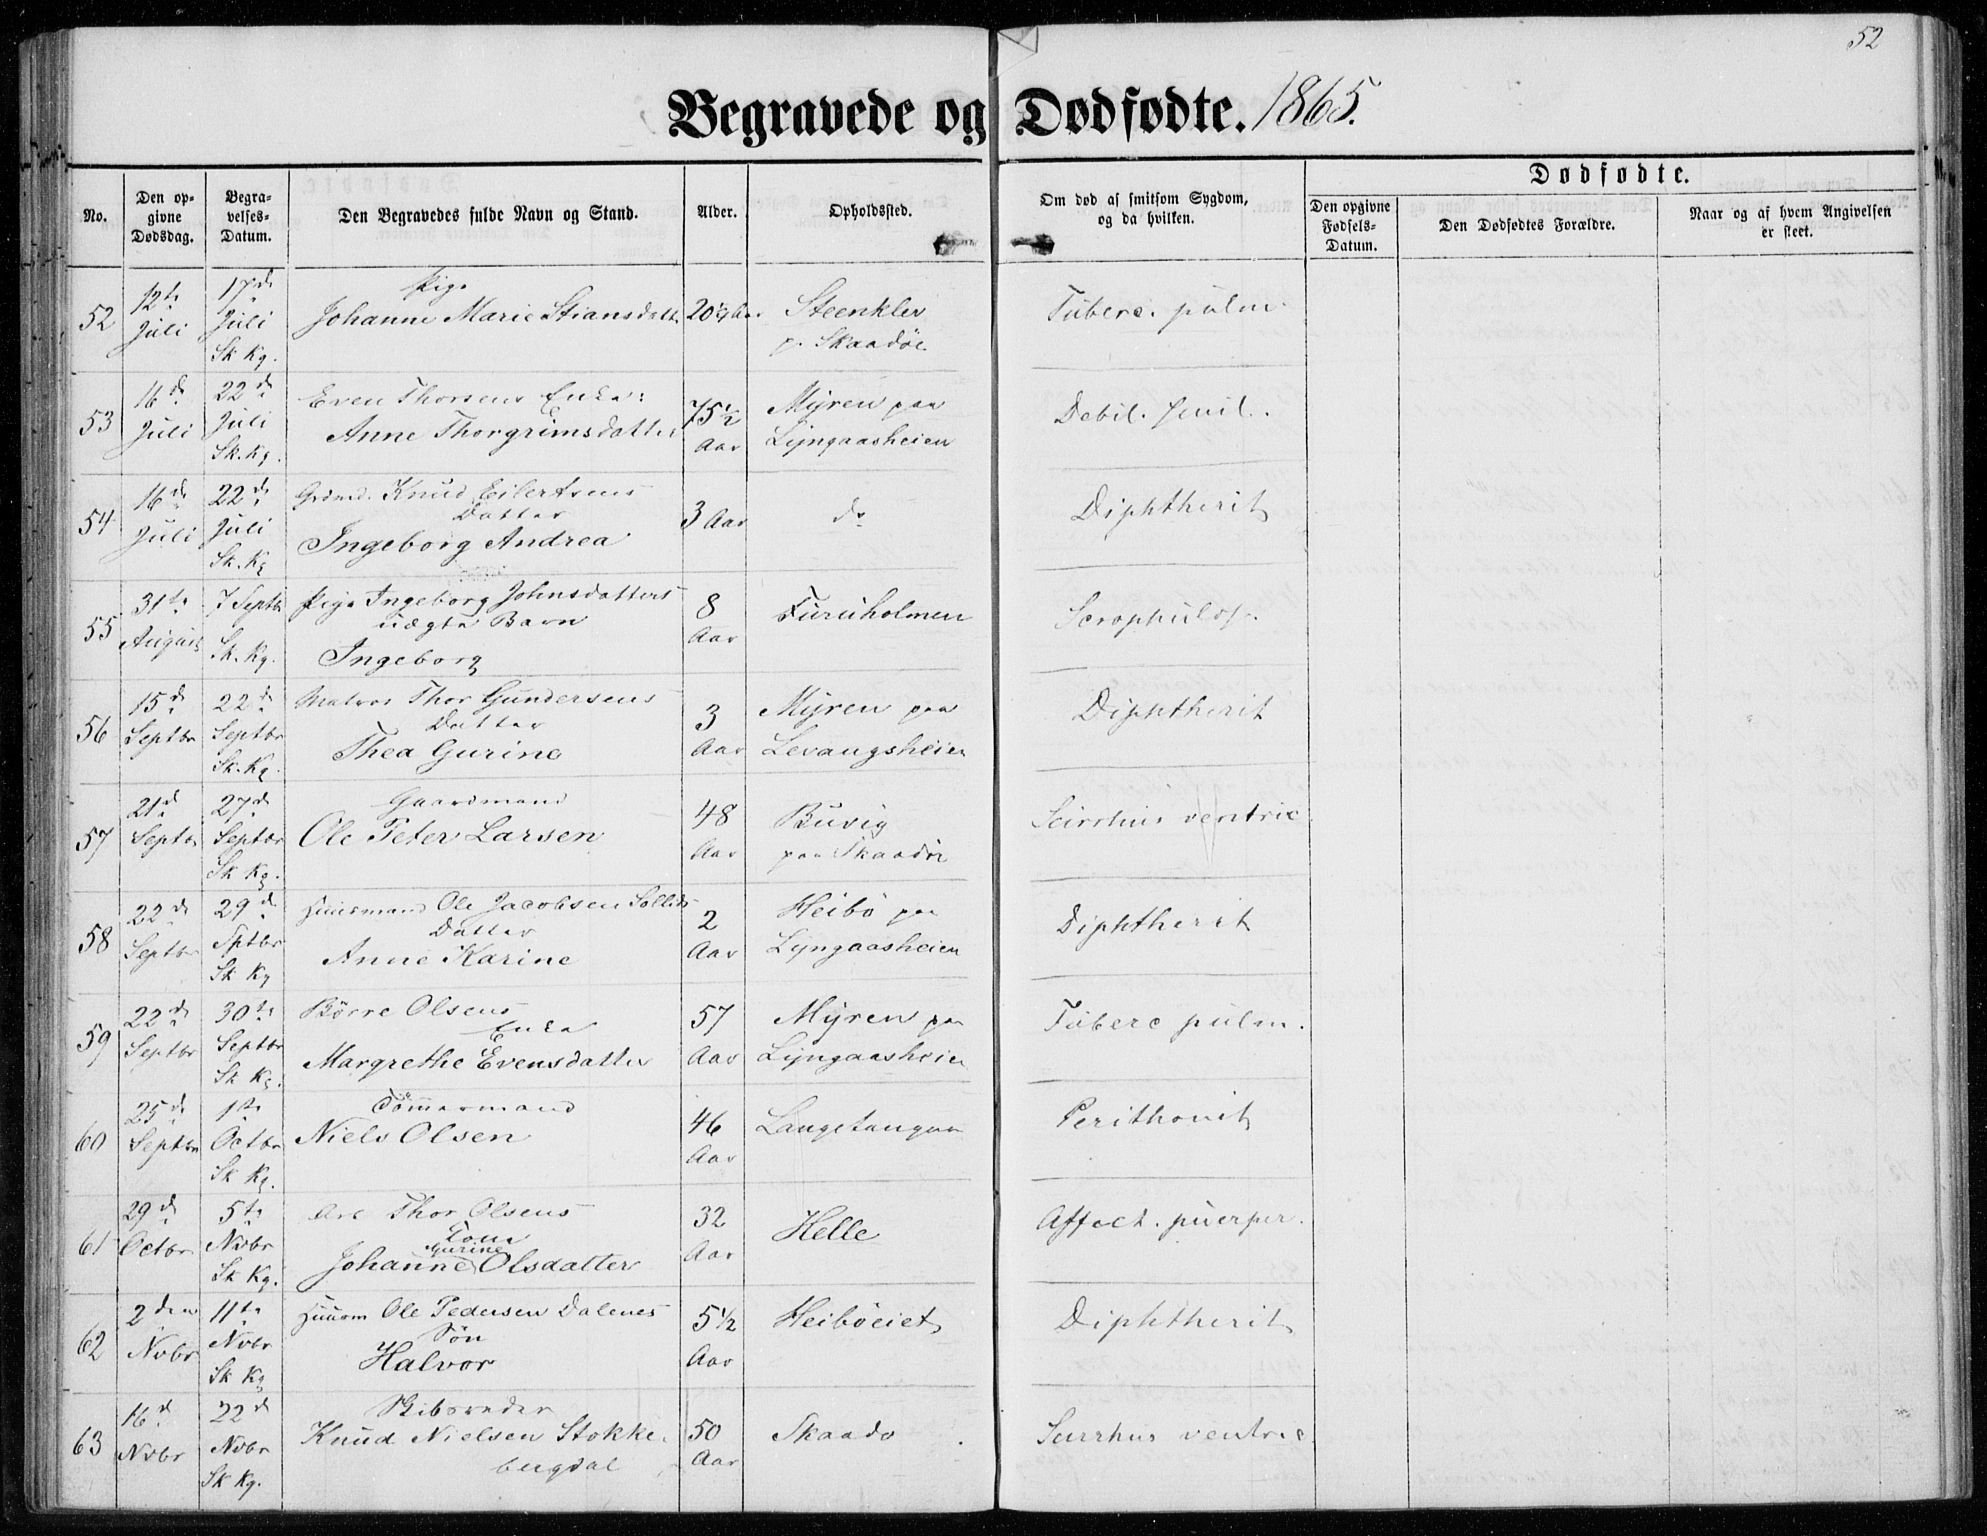 52
Begravede og Dødfødte. 1865.
No.
Den op-
givne
Dødsdag.
Begra-
velses-
Datum.
Den Begravedes fulde Navn og Stand.
Alder.
Opholdssted.
Om død af smitsom Sygdom,
og da hvilken.
Dødfødte.
Den opgivne
Fødsels-
Datum.
Den Dødfødtes Forældre.
Naar og af hvem Angivelsen
er skeet.
52 12te Juli 17de Juli Sk Kg. Pige
Johanne Marie Stiansdatt. Steenklev
p. Skaadøe. Tuberc. pulm.
53 16de Juli 22de Juli Sk. Kg. Even Thorsens Enke:
Anne Thorgrimsdatter 75½ Aar Myren paa
Lyngaasheien Debil. senil.
54 16de Juli 22de Juli Sk. Kg Grdmd. Knud Eilertsens
Datter
Ingeborg Andrea 3 Aar do Diphtherit
55 31te August 7 Septbr Sk. Kg. Pige Ingeborg Johnsdatters
uægte Barn
Ingeborg 8 Aar Furuholmen Scrophulos.
56 15de Septbr 22de Septbr Sk. Kg. Matros Thor Gundersens
Datter
Thea Gurine 3 Aar Myren paa
Levangsheien Diphtherit
57 21de Septbr 27de Septbr Sk Kg. Gaardmand
Ole Peter Larsen 48 Aar Buvig
paa Skaadøe Scirrhus ventric
58 22de Septbr 29de Sptbr Sk Kg Huusmand Ole Jacobsen Sollids
Datter
Anne Karine 2 Aar Heibö paa
Lyngaasheien Diphtherit
59 22de Septbr 30te Septbr Sk Kg. Börre Olsens
Enke
Margrethe Evensdatter 57 Aar Myren paa
Lyngaasheien Tuberc pulm.
60 25de Septbr 1te Octbr Sk Kg. Tömmermand
Niels Olsen 46 Aar Langetangen Perithonit
61 29de Octbr 5te Nvbr Sk Kg. Arb Thor Olsens
Kone
Gurine
Johanne Olsdatter 32 Aar Helle Affect. puerper.
62 2den Nvbr 11te Nvbr Sk Kg Huusm Ole Pedersen Dalenes
Søn
Halvor 5½ Aar Heibøeiet Diphtherit
63 16d Nvbr 22d Nvbr Sk Kg. Skibsreder
Knud Nielsen Stokke-
bugdal 50 Aar Skaadø Scirrhus ventric